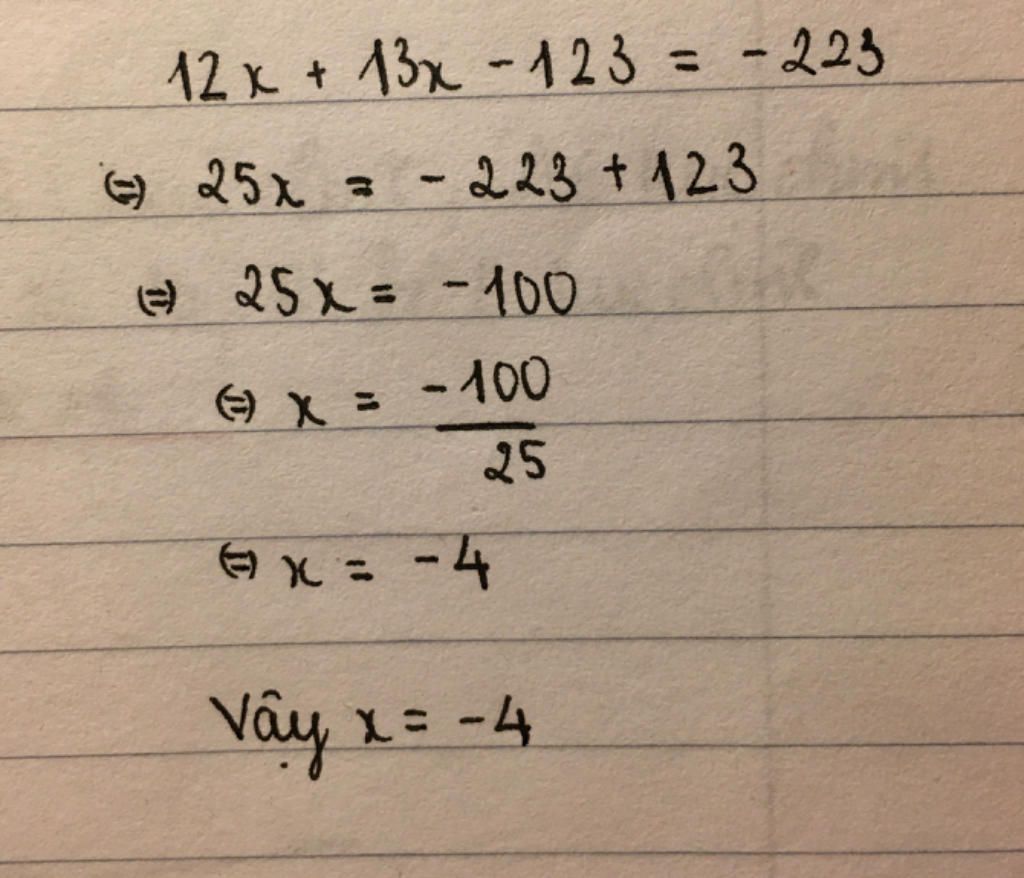 12x + 13x - 123 = - 223
⇔ 25x = - 223 + 123
⇔ 25x = - 100
⇔ x = -100/25
⇔ x = - 4
Vậy x = - 4